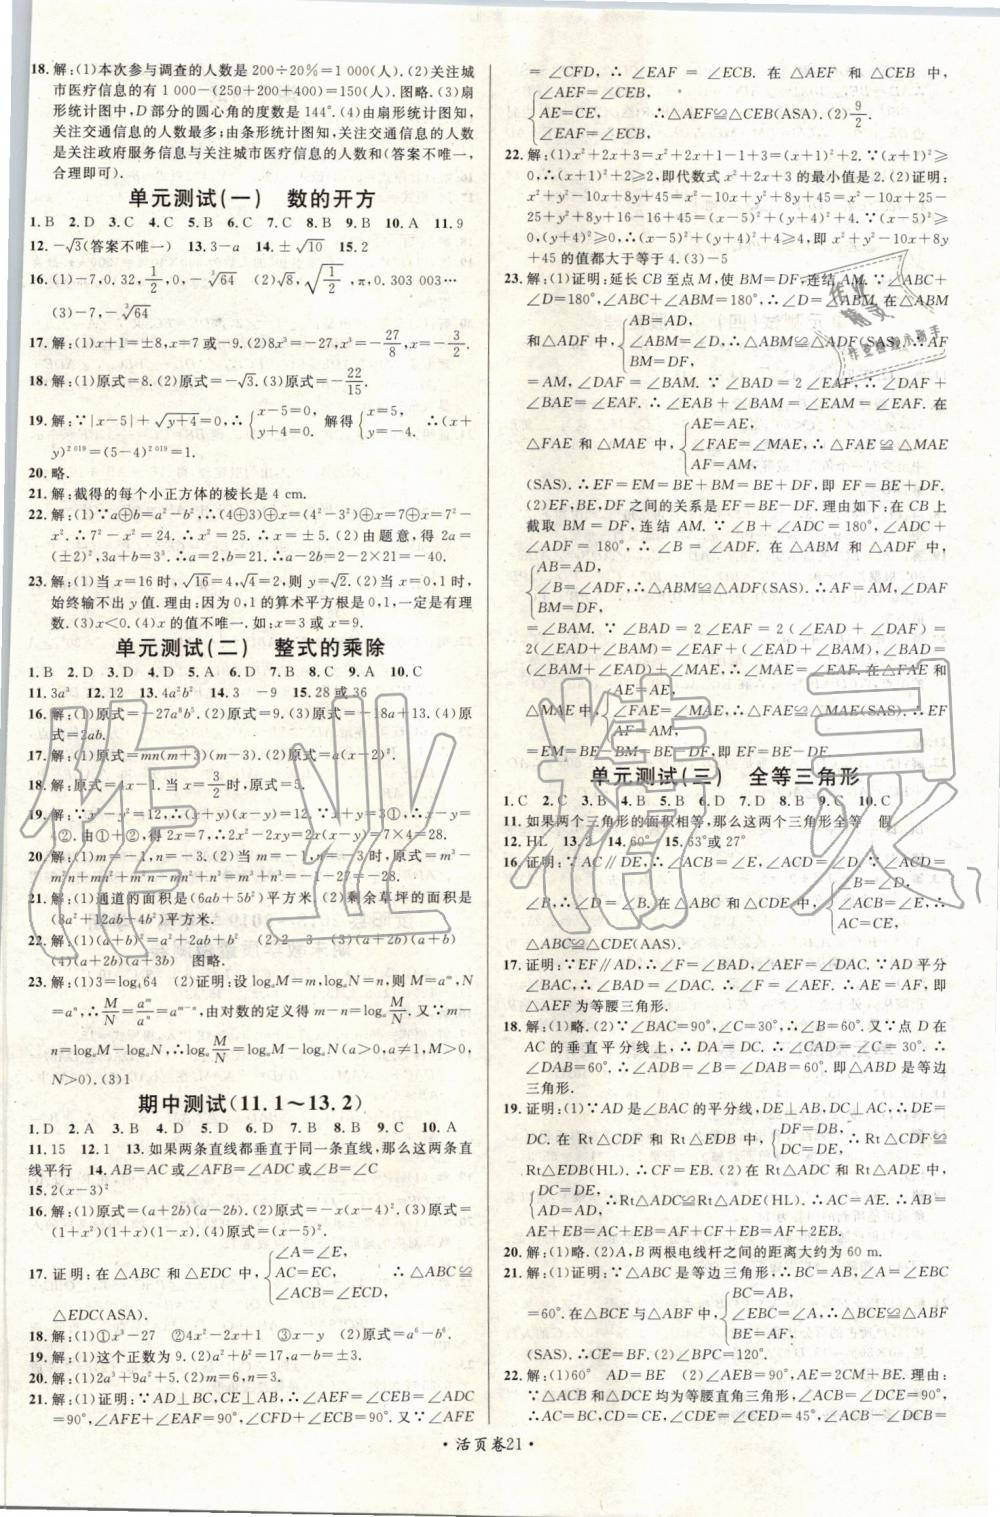 18.解:(1)本次参与调查的人数是200÷20%=1 000(人).(2)关注城
市医疗信息的有 1 000-(250+200+400)=150(人).图略.(3)扇
形统计图中,D 部分的圆心角的度数是 144°.(4)由扇形统计图知,
关注交通信息的人数最多;由条形统计图知,关注交通信息的人数
是关注政府服务信息与关注城市医疗信息的人数和(答案不唯一,
合理即可).
单元测试(一) 数的开方
1.B 2.D 3.C 4.C 5.B 6.C 7.C 8.B 9.B 10.A 11.9
12.-√3(答案不唯一) 13.3-a 14.±√10 15.2
16.(1)-7,0.32,1/2,0,-∛64 (2)√8,√(1/2),π,0.303 003…
(3)-7,-∛64
17.解:(1)x+1=±8,x=7或-9.(2)8x³=-27,x³=-27/8,x=-3/2.
18.解:(1)原式=8.(2)原式=-√3.(3)原式=-22/15.
19.解:∵|x-5|+√(y+4)=0,∴{x-5=0, y+4=0. 解得{x=5, y=-4. ∴(x+
y)²⁰¹⁹=(5-4)²⁰¹⁹=1.
20.略.
21.解:截得的每个小正方体的棱长是4 cm.
22.解:(1)∵a⊕b=a²-b²,∴(4⊕3)⊕x=(4²-3²)⊕x=7⊕x=7²-
x².∴7²-x²=24.∴x²=25.∴x=±5.(2)由题意,得 2a=
(±2)²,3a+b=3³.∴a=2,b=21.∴a-2b=2-2×21=-40.
23.解:(1)当 x=16 时,√16=4,√4=2,则 y=√2.(2)当 x=0,1 时,
始终输不出 y 值.理由:因为0,1的算术平方根是0,1,一定是有理
数.(3)x<0.(4)x 的值不唯一.如:x=3 或 x=9.
单元测试(二) 整式的乘除
1.B 2.D 3.D 4.D 5.A 6.D 7.B 8.C 9.A 10.C
11.3a³ 12.12 13.4a²b² 14.3 -9 15.28或36
16.解:(1)原式=-27a⁸b⁵.(2)原式=9.(3)原式=-18a+13.(4)原
式=2ab.
17.解:(1)原式=mn(m+3)(m-3).(2)原式=a(x-2)².
18.解:原式=4x+2.当 x=3/2 时,原式=5.
20.解:(1)mn=-1,m=-3.(2)当 m=-1,n=-3 时,原式=m³-
21.解:(1)通道的面积是(6ab+5b²)平方米.(2)剩余草坪的面积是
(8a²+12ab-4b²)平方米.
22.解:(1)(a+b)²=a²+2ab+b² (2)2 3 (3)(a+b)(a+2b)
(4)(a+2b)(a+3b) 图略.
N>0).(3)1
期中测试(11.1~13.2)
1.D 2.A 3.B 4.C 5.D 6.D 7.B 8.C 9.C 10.A
11.15 12.1 13.如果两条直线都垂直于同一条直线,那么这两条直
线平行 14.AB=AC或∠AFB=∠ADC或∠B=∠C
15.2(x-3)²
16.解:(1)原式=(a+2b)(a-2b).(2)原式=-x(x-4)².(3)原式=
(1+x²)(1+x)(1-x).(4)原式=(x-5)².
17.证明:在△ABC 和△EDC 中,{∠A=∠E, AC=EC, ∠ACB=∠ECD, ∴△ABC≌
△EDC(ASA).
18.解:(1)①x³-27 ②4x²-2x+1 ③x-y (2)原式=a⁶-b⁶.
19.解:(1)这个正数为9.(2)a²+17=26,∴a=±3.
20.解:(1)2a³+9a²+5.(2)m=6,n=3.
21.解:(1)证明:∵AD⊥BC,CE⊥AB,∴∠AEF=∠CEB=∠ADC
=90°,∠AFE+∠EAF=90°,∠CFD+∠ECB=90°.又∵∠AFE
=∠CFD,∴∠EAF=∠ECB.在△AEF 和△CEB 中,
{∠AEF=∠CEB, AE=CE, ∠EAF=∠ECB, ∴△AEF≌△CEB(ASA).(2)9/2.
22.解:(1)x²+2x+3=x²+2x+1-1+3=(x+1)²+2.∵(x+1)²≥
0,∴(x+1)²+2≥2,即代数式x²+2x+3 的最小值是2.(2)证明:
x²+y²-10x+8y+45=x²+y²-10x+8y+45=x²-10x+25-
25+4+y²+8y+16-16+45=(x-5)²+(y+4)²+4.∵(x-5)²
≥0,(y+4)²≥0,∴(x-5)²+(y+4)²+4≥4,即 x²+y²-10x+8y
+45的值都大于等于4.(3)-5
23.解:(1)证明:延长 CB 至点 M,使 BM=DF,连结 AM.∵∠ABC+
∠D=180°,∠ABC+∠ABM=180°,∴∠D=∠ABM.在△ABM
和△ADF中,{AB=AD, ∠ABM=∠D, BM=DF, ∴△ABM≌△ADF(SAS).∴AF
=AM,∠DAF=∠BAM.∵∠BAD=2∠EAF,∴∠DAF+∠BAE
=∠EAF.∴∠EAB+∠BAM=∠EAM=∠EAF.在
△FAE 和△MAE 中,{AE=AE, ∠FAE=∠MAE, AF=AM, ∴△FAE≌△MAE
(SAS).∴EF=EM=BE+BM=BE+DF,即 EF=BE+DF.
(2)EF,BE,DF之间的关系是EF=BE-DF.理由如下:在CB上
截取 BM=DF,连结 AM.∵∠B+∠ADC=180°,∠ADC+
∠ADF=180°,∴∠B=∠ADF.在△ABM 和△ADF 中,
{AB=AD, ∠B=∠ADF, BM=DF, ∴△ABM≌△ADF(SAS).∴AF=AM,∠DAF
=EM=BE-BM=BE-DF,即EF=BE-DF.
单元测试(三) 全等三角形
1.C 2.C 3.B 4.B 5.B 6.D 7.D 8.B 9.C 10.C
11.如果两个三角形的面积相等,那么这两个三角形全等 假
12.HL 13.2 14.60° 15.63°或27°
17.证明:∵EF∥AD,∴∠F=∠BAD,∠AEF=∠DAC.∵AD平分
∠BAC,∴∠BAD=∠DAC.∴∠F=∠AEF.∴AE=AF,即
△AEF为等腰三角形.
18.解:(1)略.(2)∵∠BAC=90°,∠C=30°,∴∠B=60°.又∵点 D 在
AC 的垂直平分线上,∴DA=DC.∴∠CAD=∠C=30°.∴
∠DAB=60°.∴∠ADB=∠B=∠DAB=60°.即△ABD是等边
三角形.
19.证明:(1)∵AD是∠BAC的平分线,DE⊥AB,DC⊥AC,∴DE=
DC.在 Rt△CDF 和 Rt△EDB 中,{DF=DB, DC=DE, ∴Rt△CDF≌
Rt△EDB(HL).∴CF=EB.(2)在 Rt△ADC 与 Rt△ADE 中,
{DC=DE, AD=AD, ∴Rt△ADC≌Rt△ADE(HL).∴AC=AE.∴AB=
AE+EB=AC+EB=AF+CF+EB=AF+2EB.
20.解:(1)略.(2)A,B两根电线杆之间的距离大约为60 m.
21.解:(1)证明:∵△ABC是等边三角形,∴BC=AB,∠A=∠EBC
=60°.在△BCE与△ABF中,{BC=AB, ∠EBC=∠A, BE=AF, ∴△BCE≌△ABF
(SAS).∴CE=BF.(2)∠BPC=120°.
22.解:(1)60° AD=BE (2)∠AEB=90°,AE=2CM+BE.理由:
∵△ACB和△DCE均为等腰直角三角形,∠ACB=∠DCE=
90°,∴AC=BC,CD=CE,∠CDE=∠CED=45°,∠ACB-∠DCB=
• 活页卷21 •